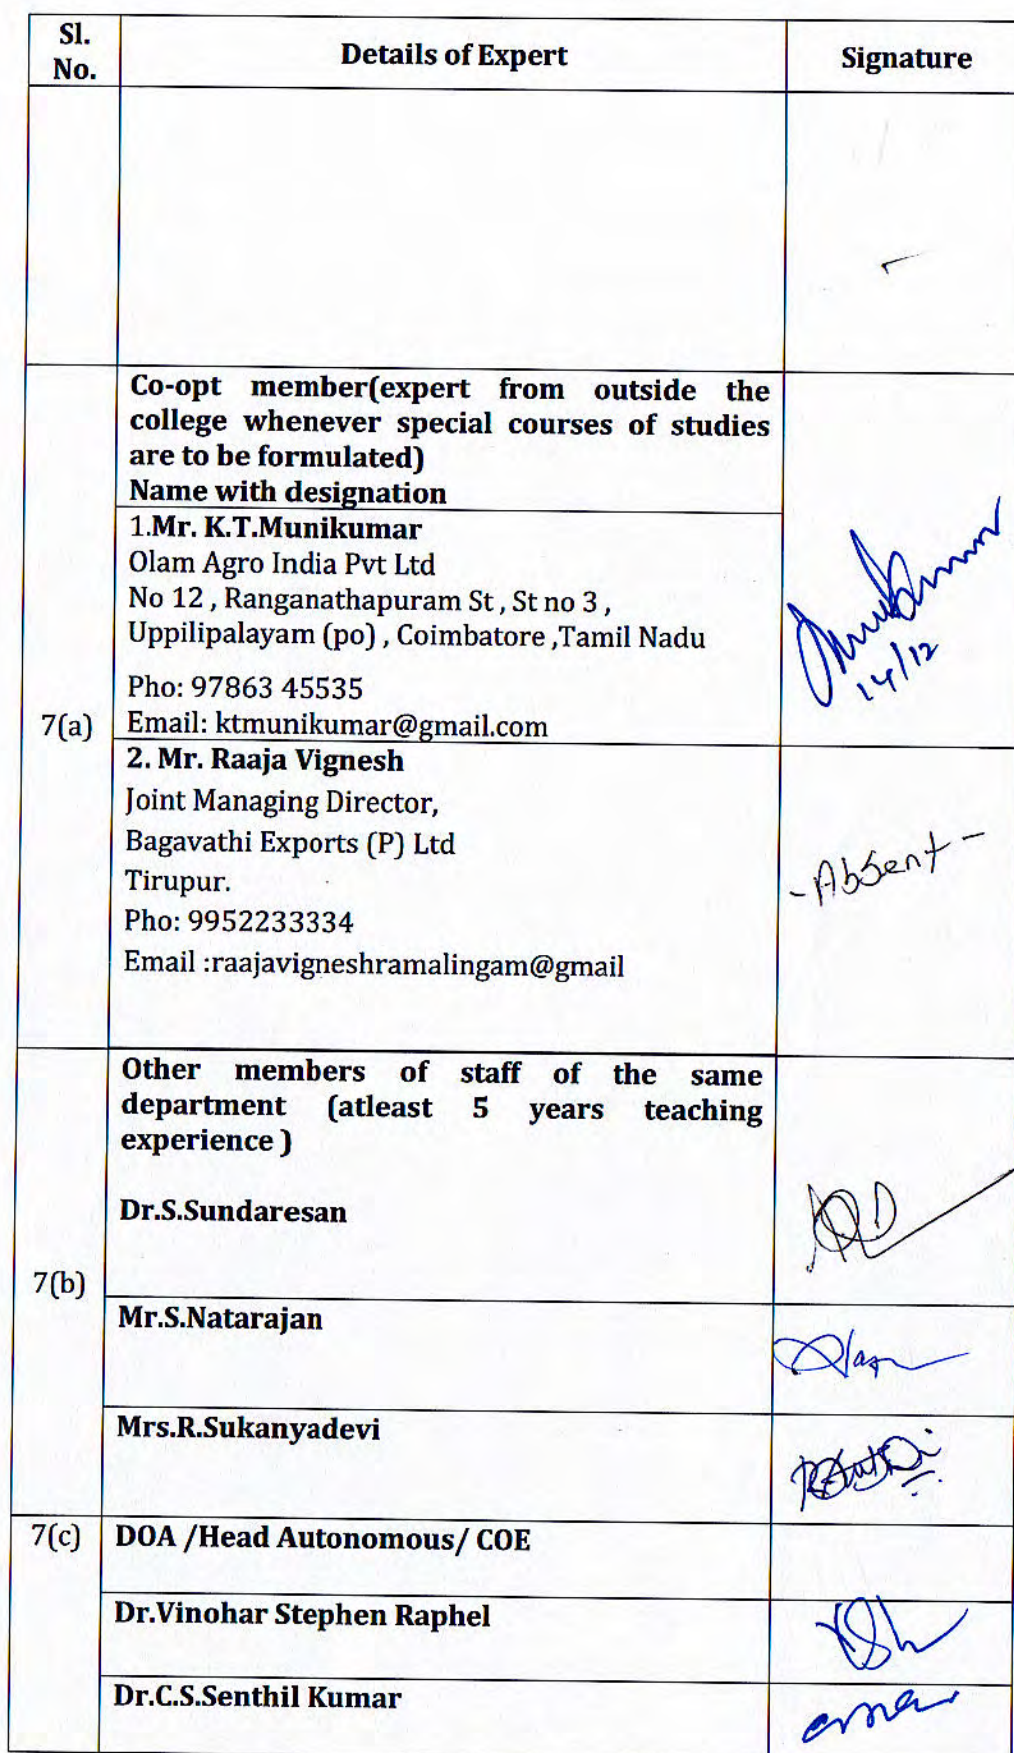 Sl. No.
Details of Expert
Signature
Co-opt member(expert from outside the
college whenever special courses of studies
are to be formulated)
Name with designation
7(a)
1.Mr. K.T.Munikumar
Olam Agro India Pvt Ltd
No 12 , Ranganathapuram St , St no 3 ,
Uppilipalayam (po) , Coimbatore ,Tamil Nadu
Pho: 97863 45535
Email: ktmunikumar@gmail.com
14/12
2. Mr. Raaja Vignesh
Joint Managing Director,
Bagavathi Exports (P) Ltd
Tirupur.
Pho: 9952233334
Email :raajavigneshramalingam@gmail
- Absent -
7(b)
Other members of staff of the same
department (atleast 5 years teaching
experience )
Dr.S.Sundaresan
Mr.S.Natarajan
Mrs.R.Sukanyadevi
7(c)
DOA /Head Autonomous/ COE
Dr.Vinohar Stephen Raphel
Dr.C.S.Senthil Kumar